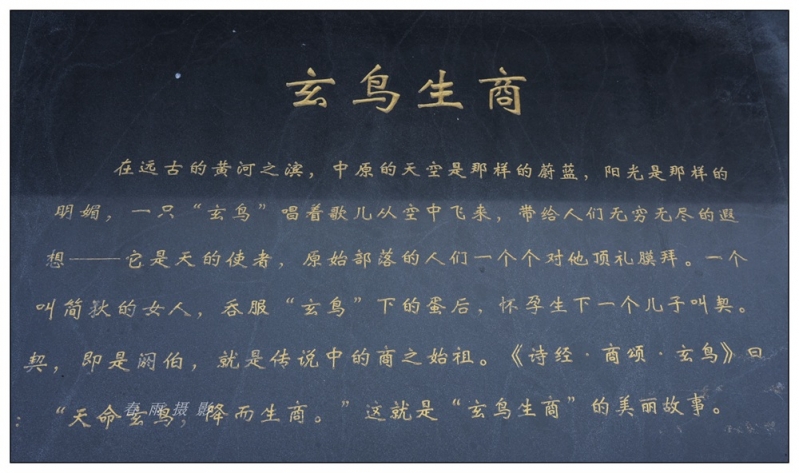 玄鸟生商
在远古的黄河之滨，中原的天空是那样的蔚蓝，阳光是那样的
明媚，一只“玄鸟”唱着歌儿从空中飞来，带给人们无穷无尽的遐
想——它是天的使者，原始部落的人们一个个对他顶礼膜拜。一个
叫简狄的女人，吞服“玄鸟”下的蛋后，怀孕生下一个儿子叫契。
契，即是阏伯，就是传说中的商之始祖。《诗经·商颂·玄鸟》曰
：“天命玄鸟，降而生商。”这就是“玄鸟生商”的美丽故事。
春雨摄影